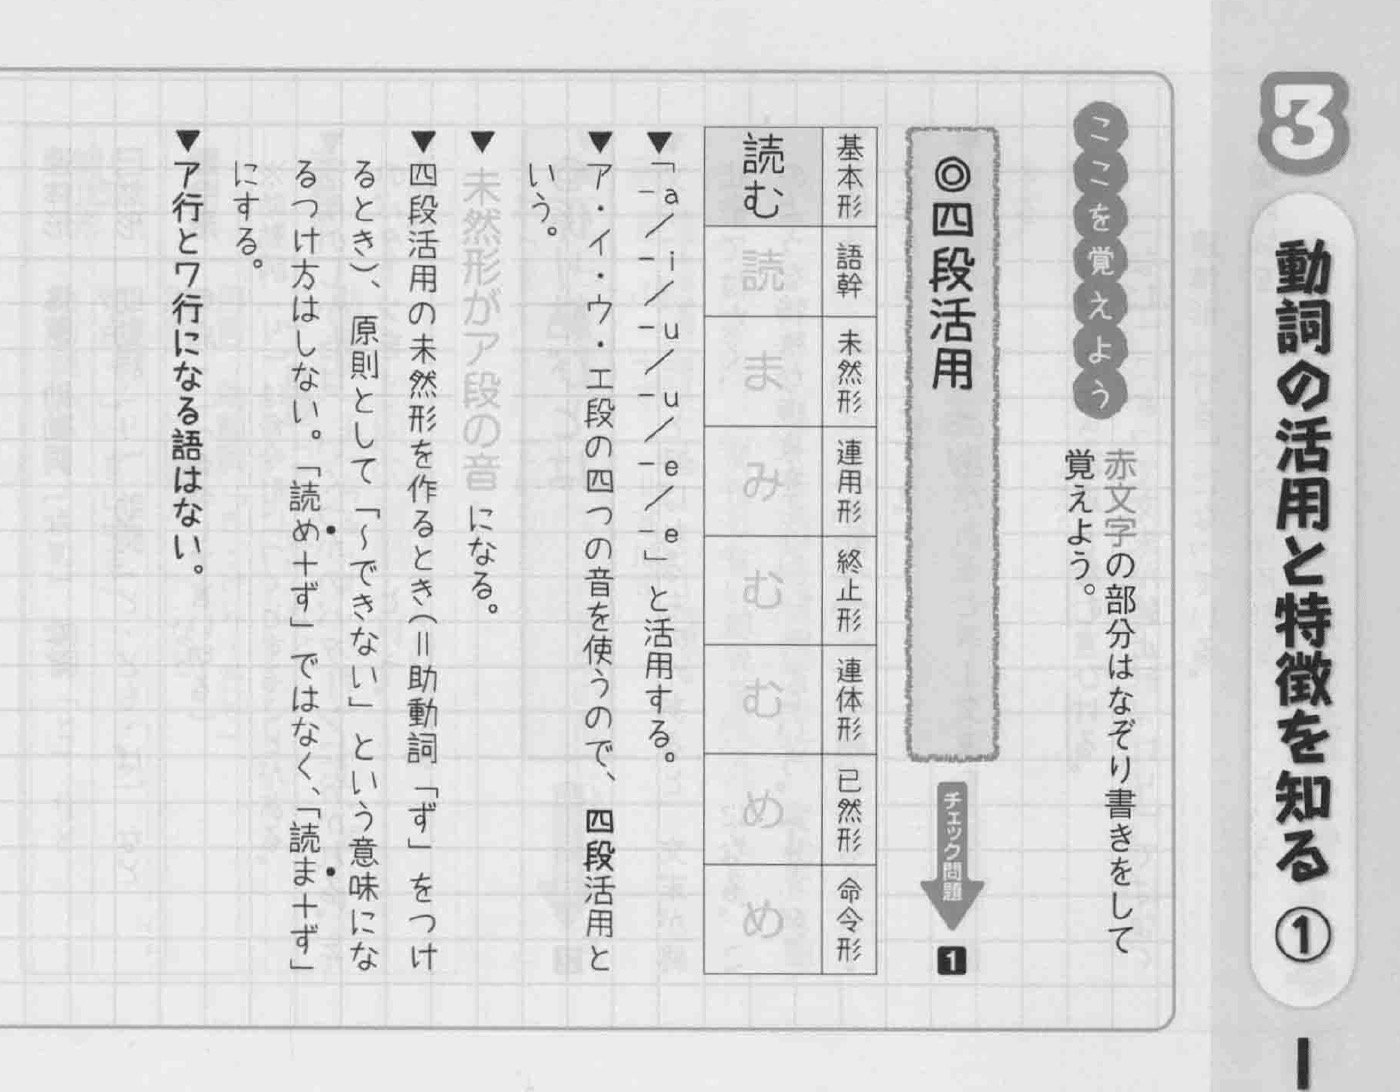 3
動詞の活用と特徴を知る①
ここを覚えよう
赤文字の部分はなぞり書きをして
覚えよう。
◎四段活用
チェック問題
1
基本形 語幹 未然形 連用形 終止形 連体形 已然形 命令形
読む 読 ま み む む め め
▼「–a/–i/–u/–u/–e/–e」と活用する。
▼ア・イ・ウ・エ段の四つの音を使うので、四段活用と
いう。
▼未然形がア段の音になる。
▼四段活用の未然形を作るとき(=助動詞「ず」をつけ
るとき)、原則として「~できない」という意味にな
るつけ方はしない。「読め+ず」ではなく、「読ま+ず」
にする。
▼ア行とワ行になる語はない。